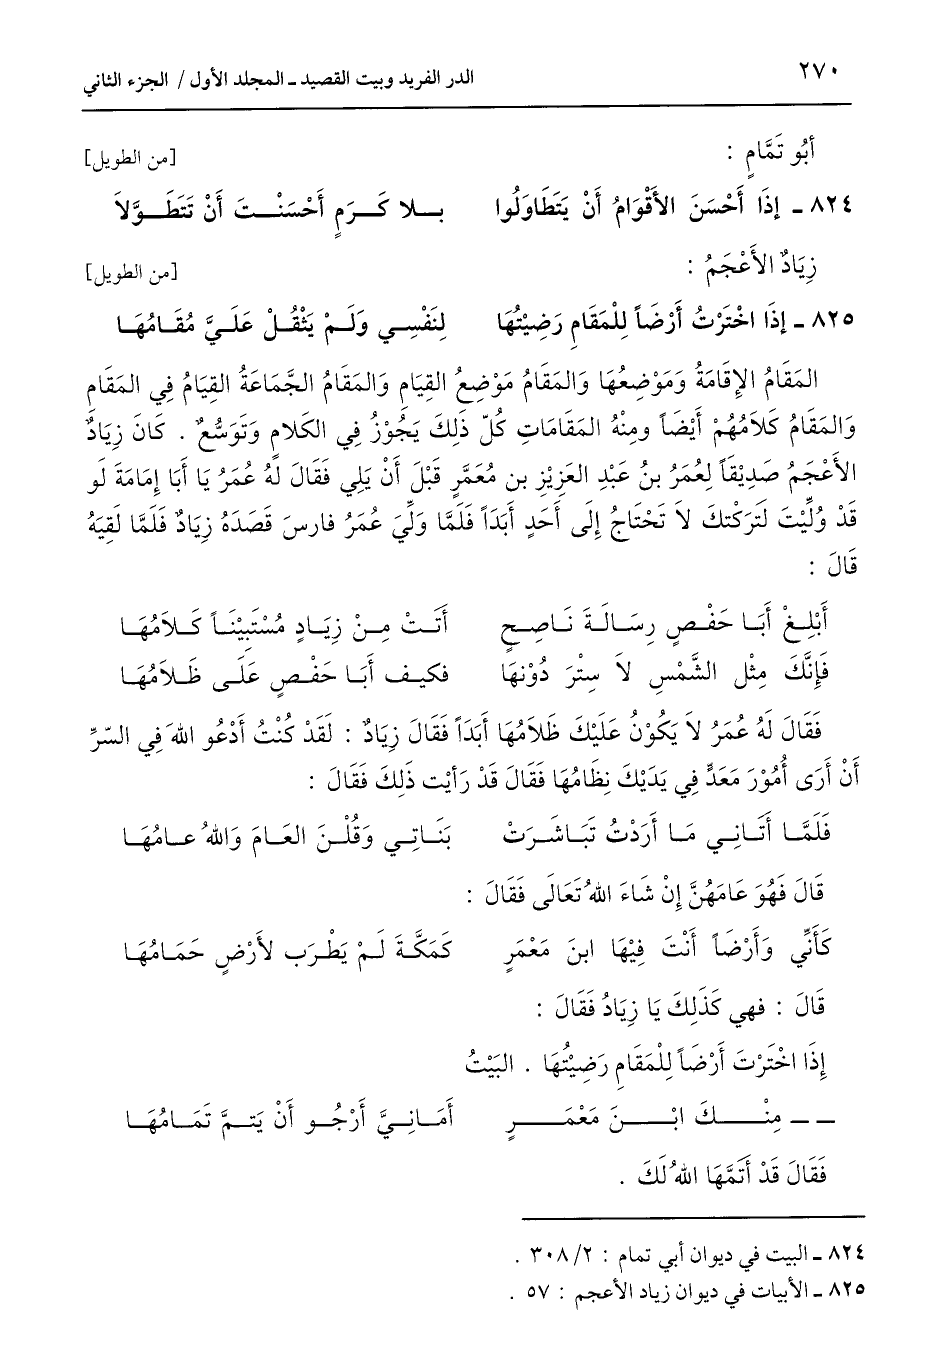 ٢٧٠
الدر الفريد وبيت القصيد ـ المجلد الأول / الجزء الثاني
أَبُو تَمَّامٍ : [من الطويل]
٨٢٤ ـ إِذَا أَحْسَنَ الأَقْوَامُ أَنْ يَتَطَاوَلُوا بـلا كَـرَمٍ أَحْسَنْـتَ أَنْ تَتَطَـوَّلاَ
زِيَادٌ الأَعْجَمُ : [من الطويل]
٨٢٥ ـ إِذَا اخْتَرْتُ أَرْضَاً لِلمَقَامِ رَضِيْتُهَا لِنَفْسِي وَلَـمْ يَثْقُـلْ عَلَـيَّ مُقَـامُهَـا
المَقَامُ الإِقَامَةُ وَمَوْضِعُهَا وَالمَقَامُ مَوْضِعُ القِيَامِ وَالمَقَامُ الجَّمَاعَةُ القِيَامُ فِي المَقَامِ
وَالمَقَامُ كَلاَمُهُمْ أَيْضَاً ومِنْهُ المَقَامَاتِ كُلّ ذَلِكَ يَجُوْزُ فِي الكَلامِ وَتَوَسُّعٌ . كَانَ زِيَادٌ
الأَعْجَمُ صَدِيْقَاً لِعُمَرُ بنُ عَبْدِ العَزِيْزِ بن مُعَمَّرٍ قَبْلَ أَنْ يَلِي فَقَالَ لَهُ عُمَرُ يَا أَبَا إِمَامَةَ لَو
قَدْ وُلِّيْتَ لَتَرَكْتكَ لاَ تَحْتَاجُ إِلَى أَحَدٍ أَبَدَاً فَلَمَّا وَلِيَ عُمَرُ فارسَ قَصَدَهُ زِيَادٌ فَلَمَّا لَقِيَهُ
قَالَ :
أَبْلِـغْ أَبَـا حَفْـصٍ رِسَـالَـةَ نَـاصِـحٍ أَتَـتْ مِـنْ زِيَـادٍ مُسْتَبِيْنَـاً كَـلاَمُهَـا
فَإِنَّكَ مِثْل الشَّمْسِ لاَ سِتْرَ دُوْنهَا فكيـف أَبَـا حَفْـصٍ عَلَـى ظَـلاَمُهَـا
فَقَالَ لَهُ عُمَرُ لاَ يَكُوْنُ عَلَيْكَ ظَلاَمُهَا أَبَدَاً فَقَالَ زِيَادٌ : لَقَدْ كُنْتُ أَدْعُو اللهَ فِي السّرِّ
أَنْ أَرَى أُمُوْرَ مَعَدٍّ فِي يَدَيْكَ نِظَامُهَا فَقَالَ قَدْ رَأيْت ذَلِكَ فَقَالَ :
فَلَمَّـا أَتَـانِـي مَـا أَرَدْتُ تَبَـاشَـرَتْ بَنَـاتِـي وَقُلْـنَ العَـامَ وَاللهُ عـامُهَـا
قَالَ فَهُوَ عَامَهُنَّ إِنْ شَاءَ اللهُ تَعَالَى فَقَالَ :
كَأَنِّي وَأَرْضَاً أَنْتَ فِيْهَا ابنَ مَعْمَرٍ كَمَكَّةَ لَـمْ يَطْـرَب لأَرْضٍ حَمَـامُهَـا
قَالَ : فهي كَذَلِكَ يَا زِيَادُ فَقَالَ :
إِذَا اخْتَرْتَ أَرْضَاً لِلْمَقَامِ رَضِيْتُهَا . البَيْتُ
ــ ــ مِنْـــكَ ابْـــنَ مَعْمَـــرٍ أَمَـانِـيَّ أَرْجُـو أَنْ يَتـمَّ تَمَـامُهَـا
فَقَالَ قَدْ أَتَمَّهَا اللهُ لَكَ .
٨٢٤ ـ البيت في ديوان أبي تمام : ٢/ ٣٠٨ .
٨٢٥ ـ الأبيات في ديوان زياد الأعجم : ٥٧ .